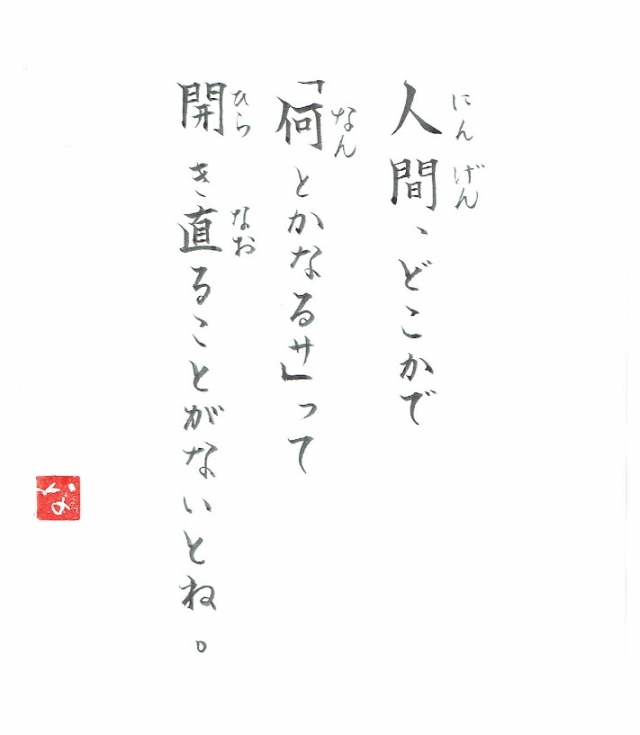 人間、どこかで
にんげん
「何とかなるサ」って
なん
開き直ることがないとね。
ひら なお
な